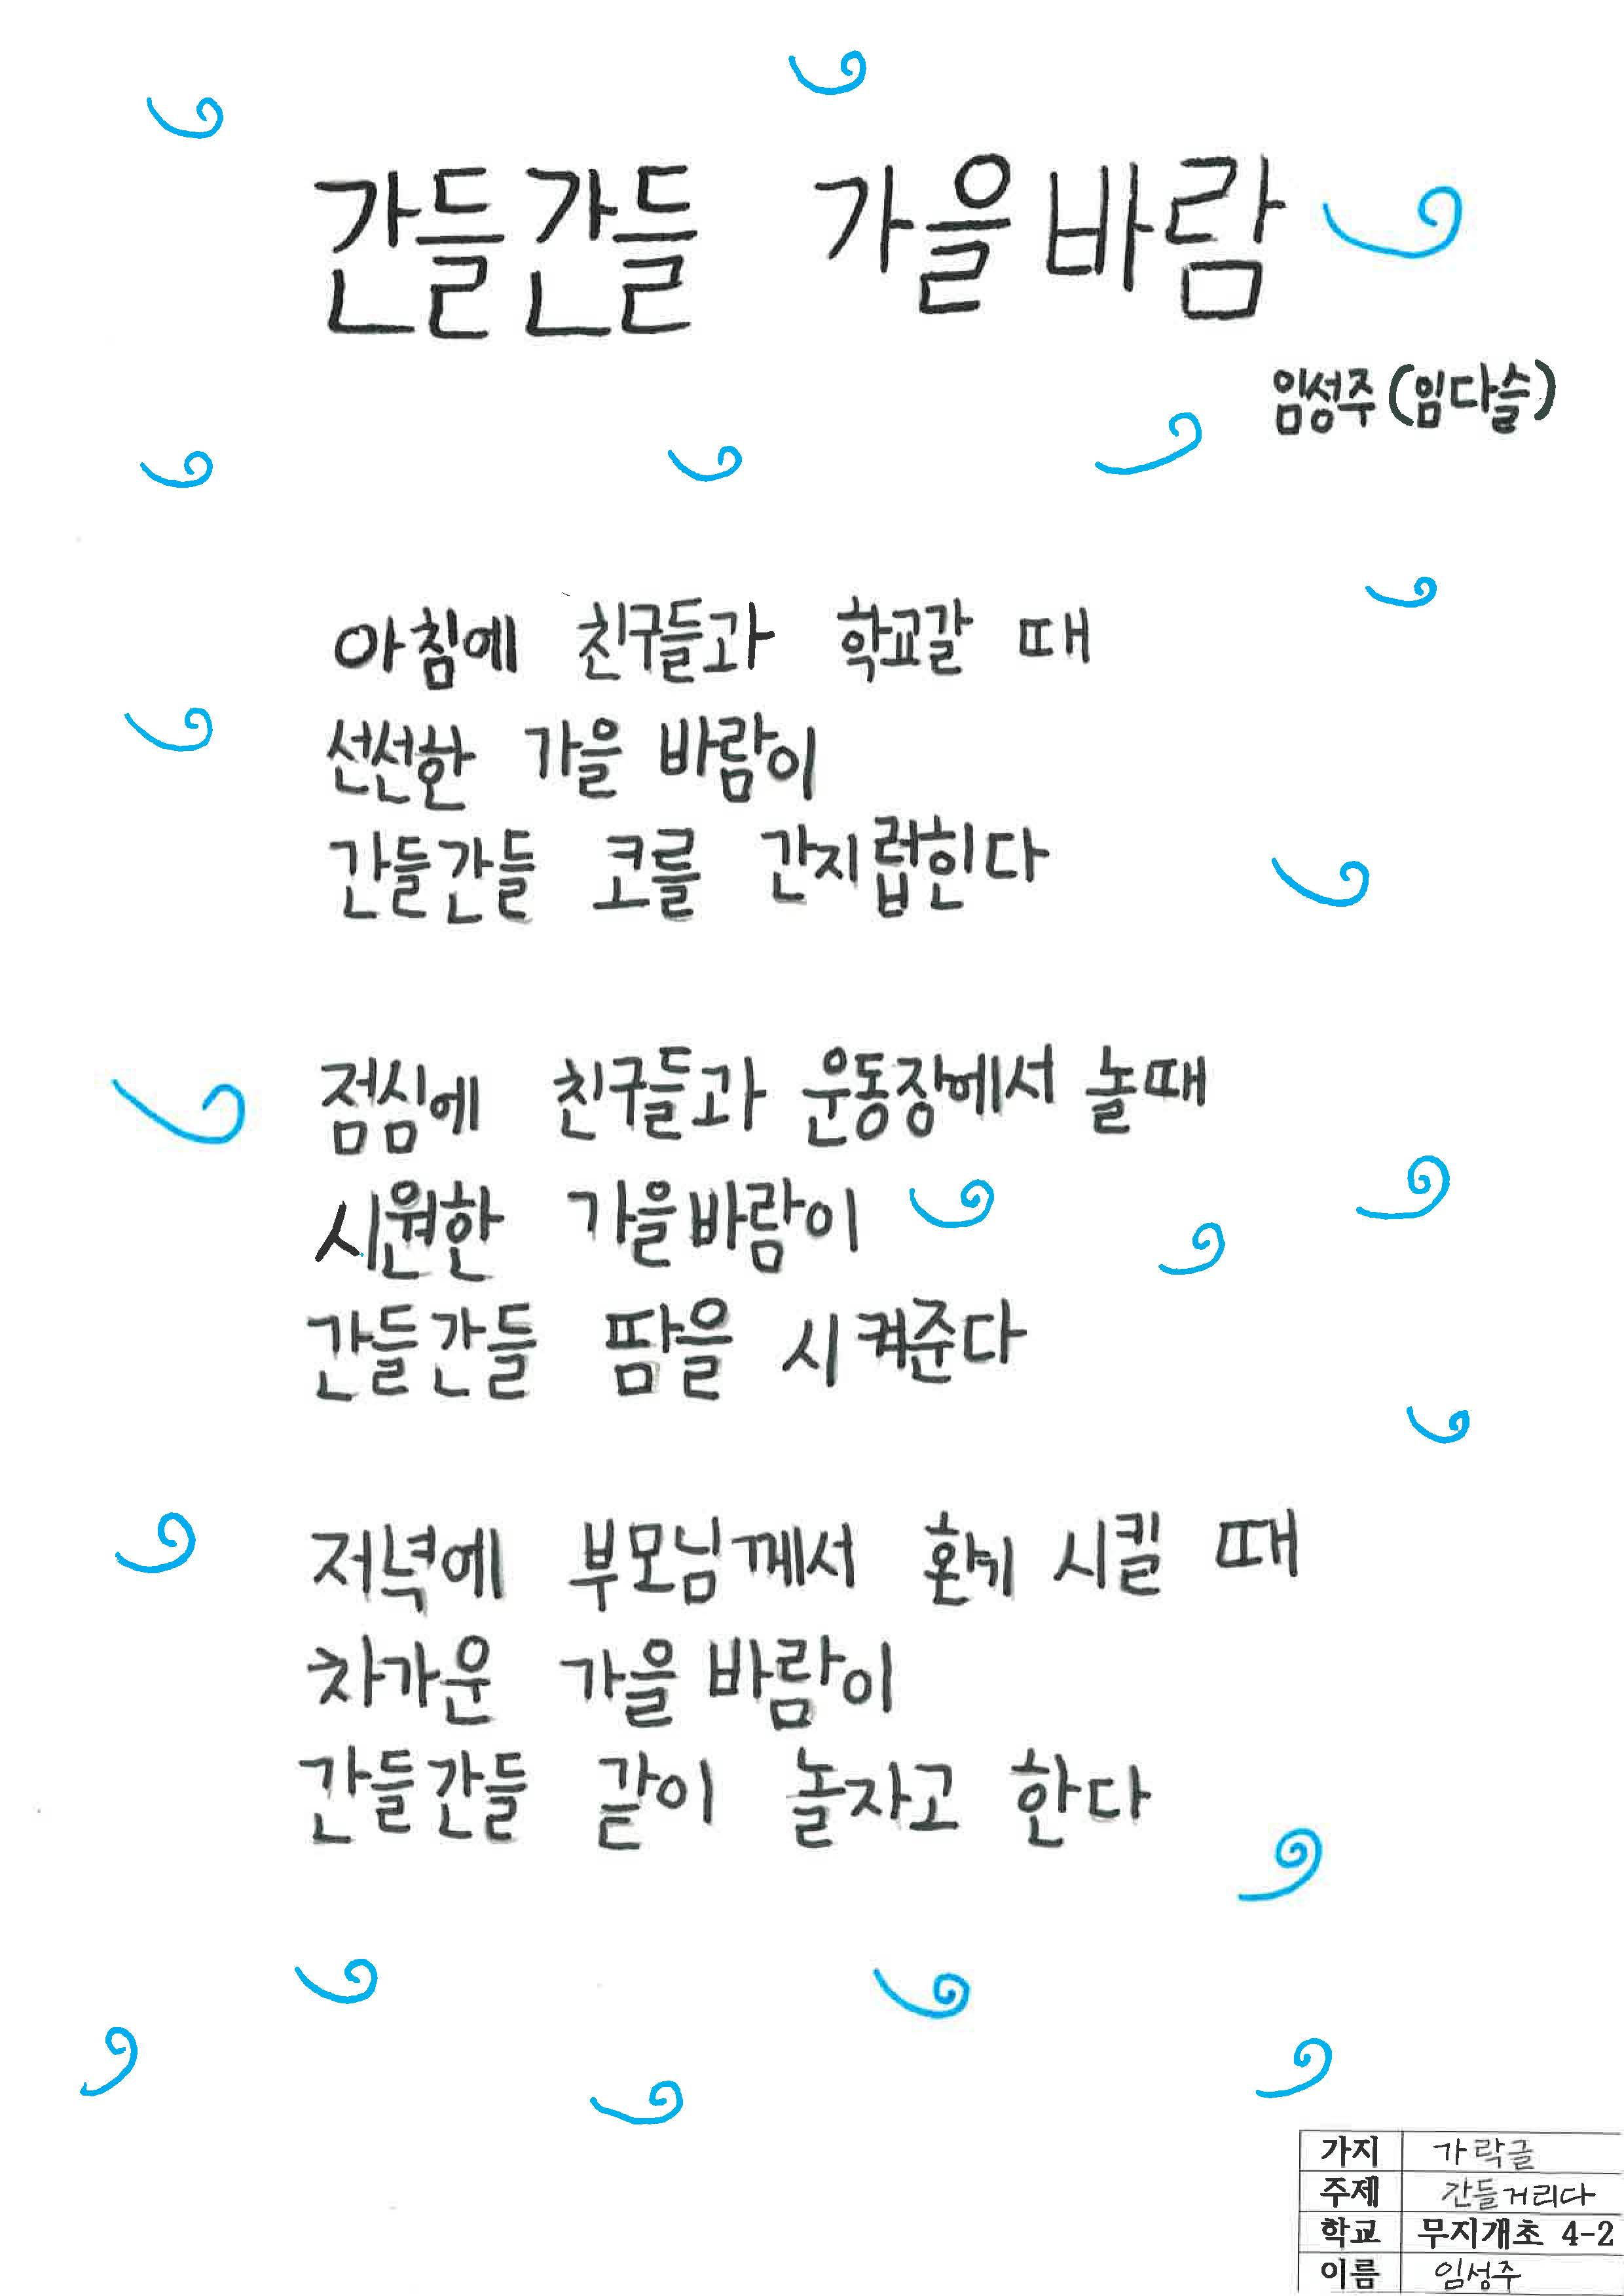 간들간들 가을바람
임성주(임다슬)
아침에 친구들과 학교갈 때
선선한 가을 바람이
간들간들 코를 간지럽힌다
점심에 친구들과 운동장에서 놀때
시원한 가을바람이
간들간들 땀을 시켜준다
저녁에 부모님께서 환기 시킬 때
차가운 가을 바람이
간들간들 같이 놀자고 한다
가지 가락글
주제 간들거리다
학교 무지개초 4-2
이름 임성주